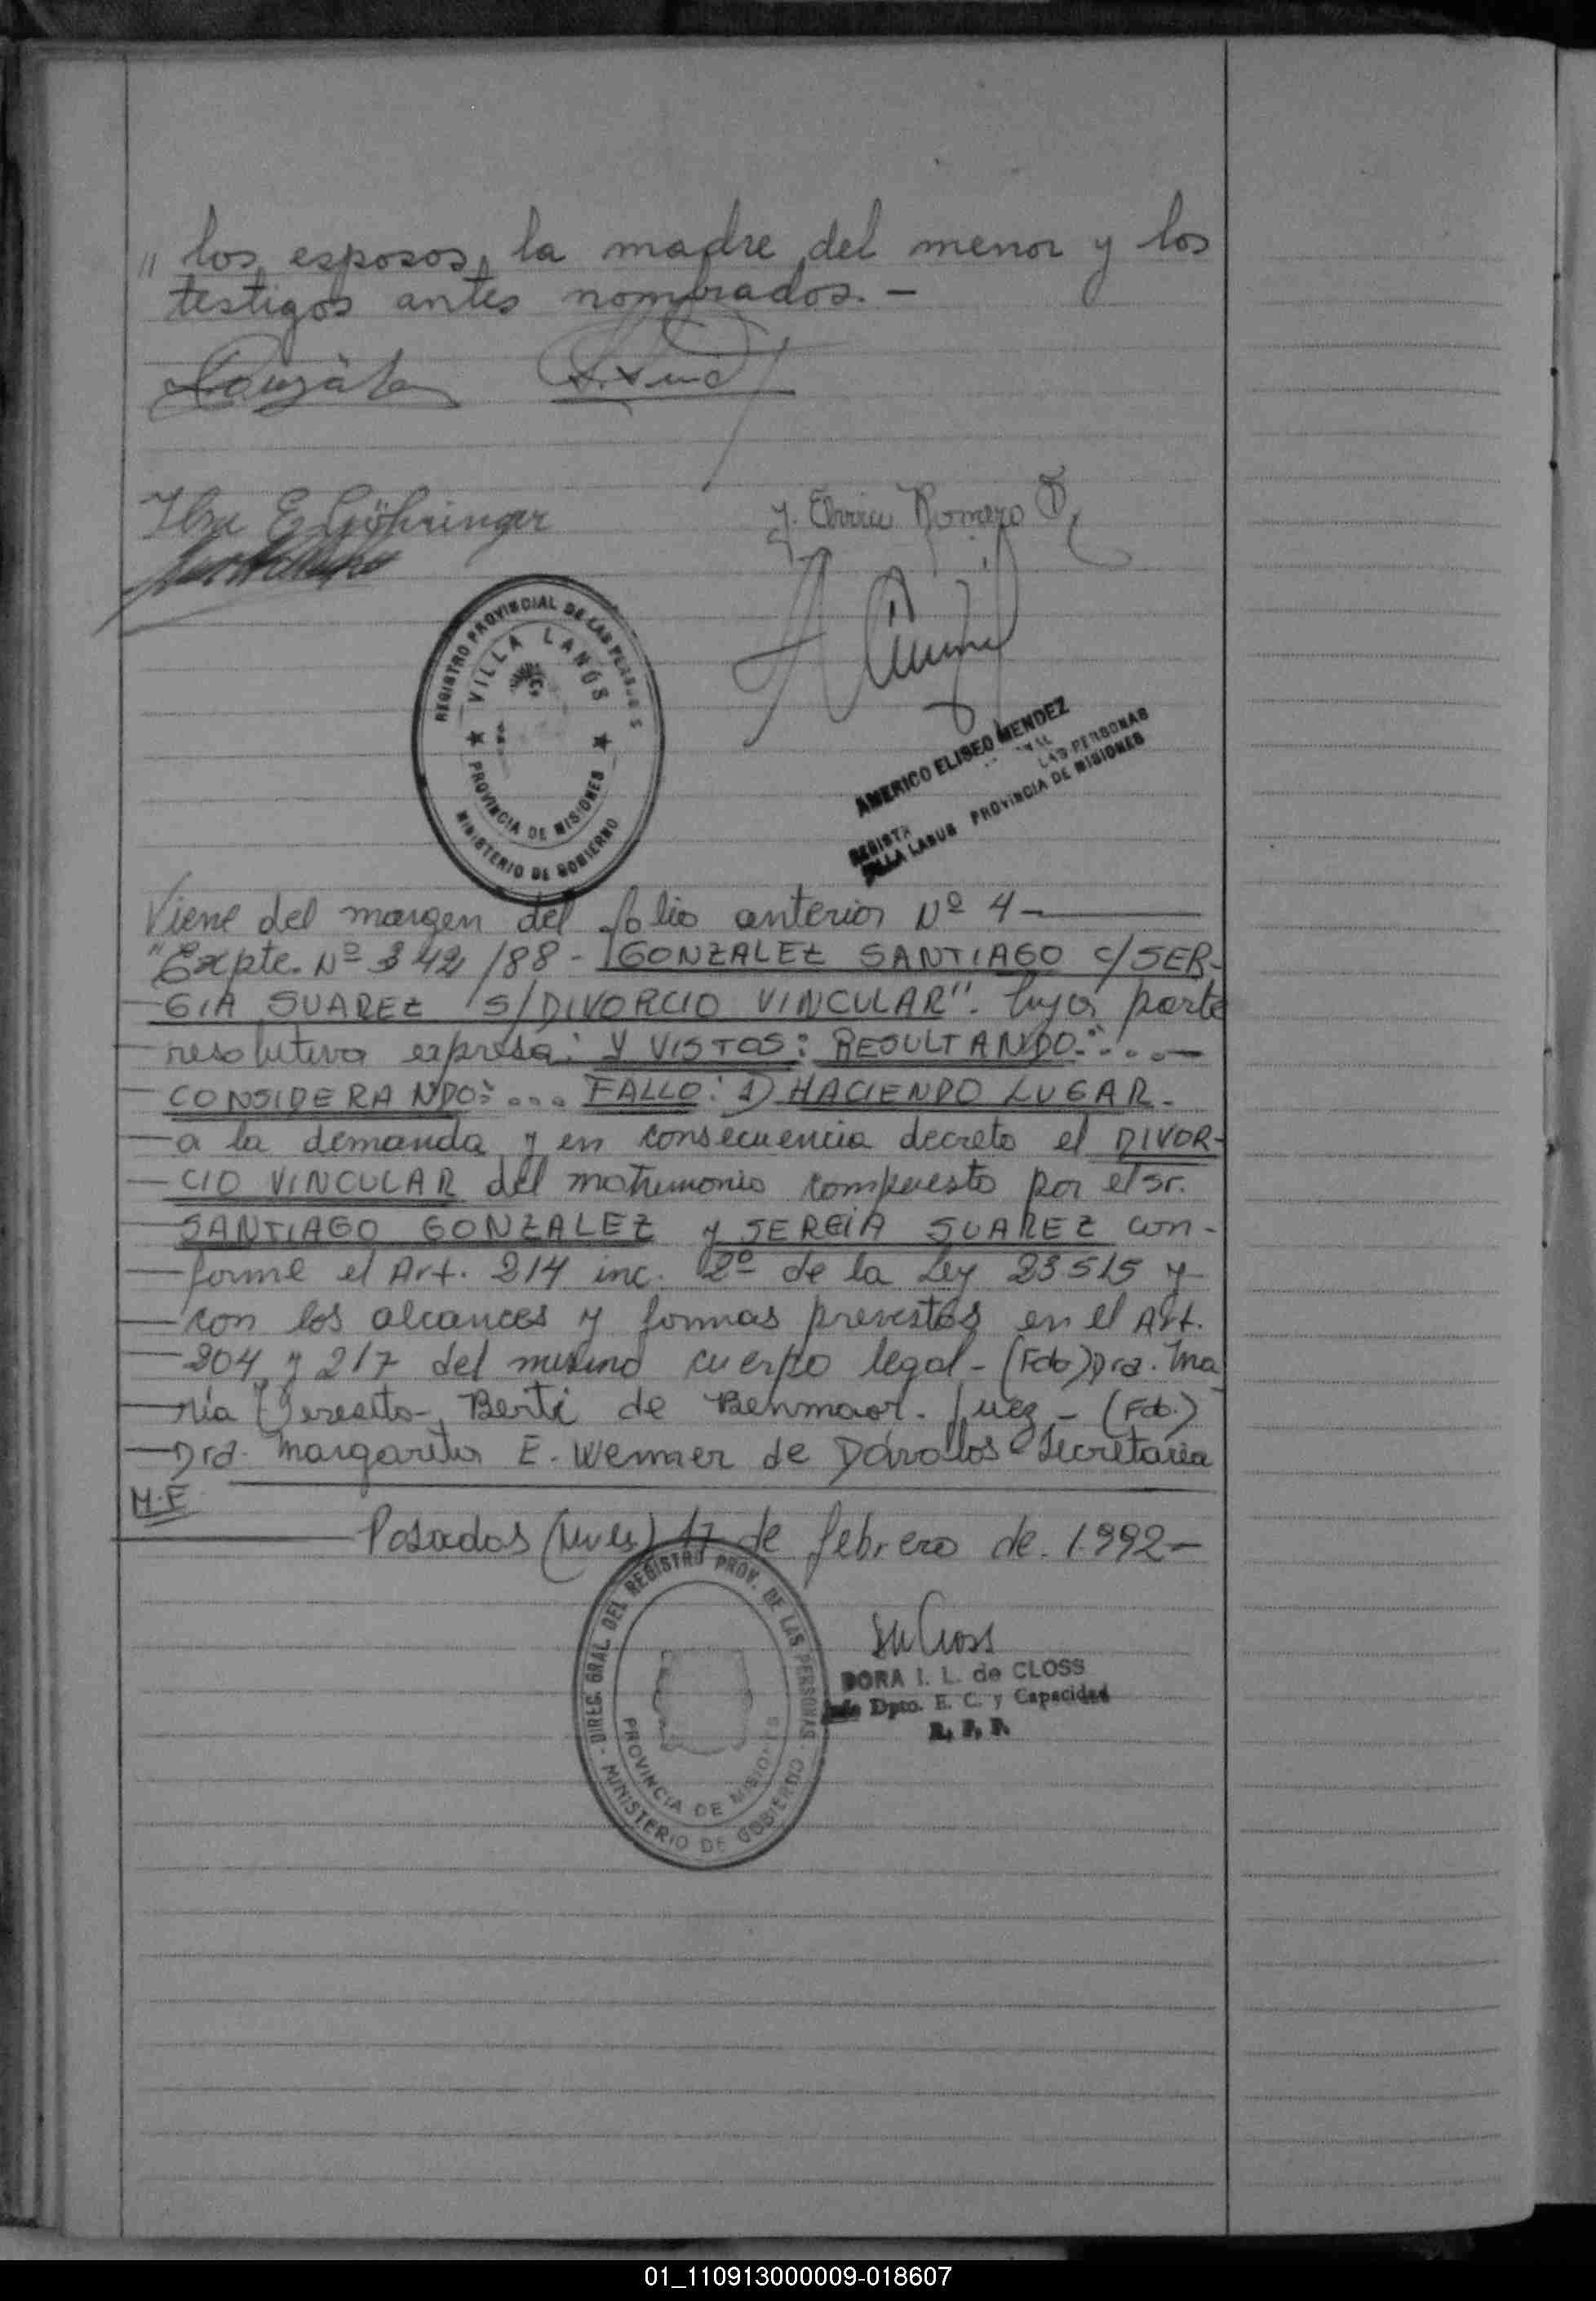 " los esposos, la madre del menor y los
testigos antes nombrados. -
Ilse E Göhringer
Romero
REGISTRO PROVINCIAL DE LAS PERSONAS
VILLA LANÚS
PROVINCIA DE MISIONES
MINISTERIO DE GOBIERNO
AMERICO ELISEO MENDEZ
LAS PERSONAS
REGISTR
VILLA LANUS PROVINCIA DE MISIONES
Viene del margen del folio anterior Nº 4 -
"Expte. Nº 342/88 - GONZALEZ SANTIAGO c/SER-
GIA SUAREZ S/DIVORCIO VINCULAR". Cuya parte
resolutiva expresa: Y VISTOS: RESULTANDO: ... -
CONSIDERANDO: ... FALLO: 1) HACIENDO LUGAR -
a la demanda y en consecuencia decreto el DIVOR-
CIO VINCULAR del matrimonio compuesto por el sr.
SANTIAGO GONZALEZ y SERGIA SUAREZ con-
forme el Art. 214 inc. 2º de la Ley 23515 y
con los alcances y formas prevestas en el Art.
204 y 217 del mismo cuerpo legal - (Fdo) Dra. Ma
ría Teresita - Berti de Benmaor. Juez - (Fdo.)
Dra. Margarita E. Werner de Dávalos - Secretaria
M.F.
Posadas (Mnes) 17 de febrero de 1.992 -
DIREC. GRAL DEL REGISTRO PROV. DE LAS PERSONAS
PROVINCIA DE MISIONES
MINISTERIO DE GOBIERNO
DORA I. L. de CLOSS
Jefe Dpto. E. C. y Capacidad
R. P. P.
01_110913000009-018607